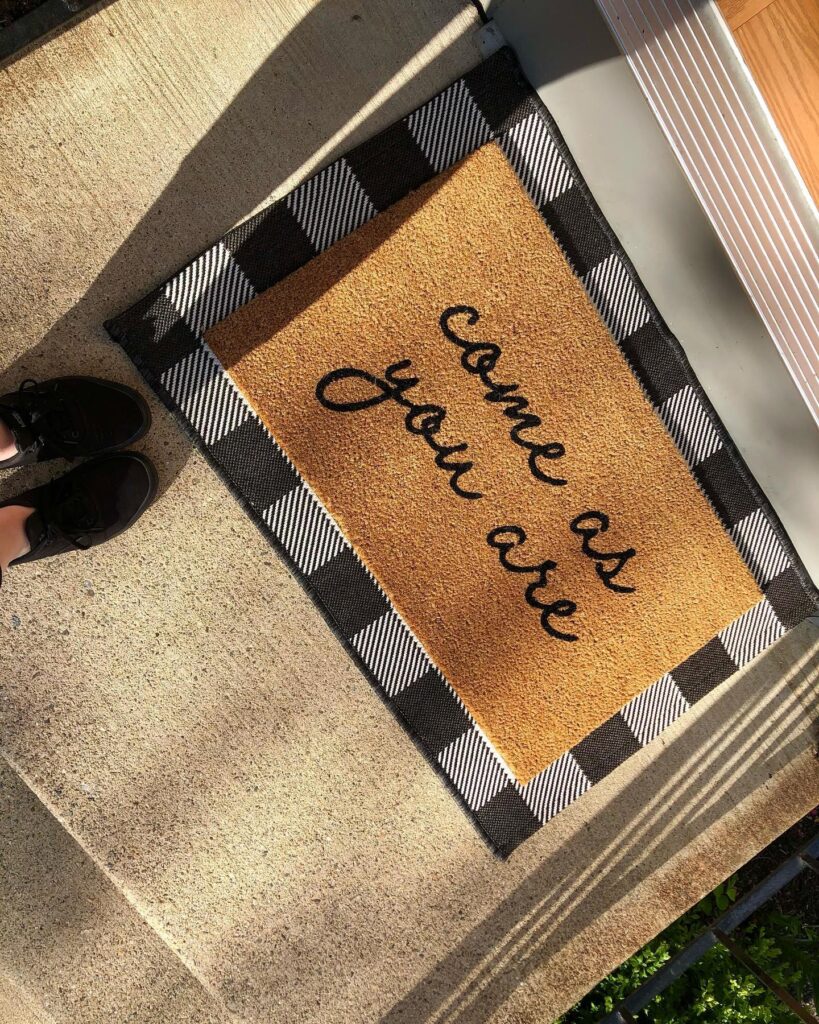 come as
you are